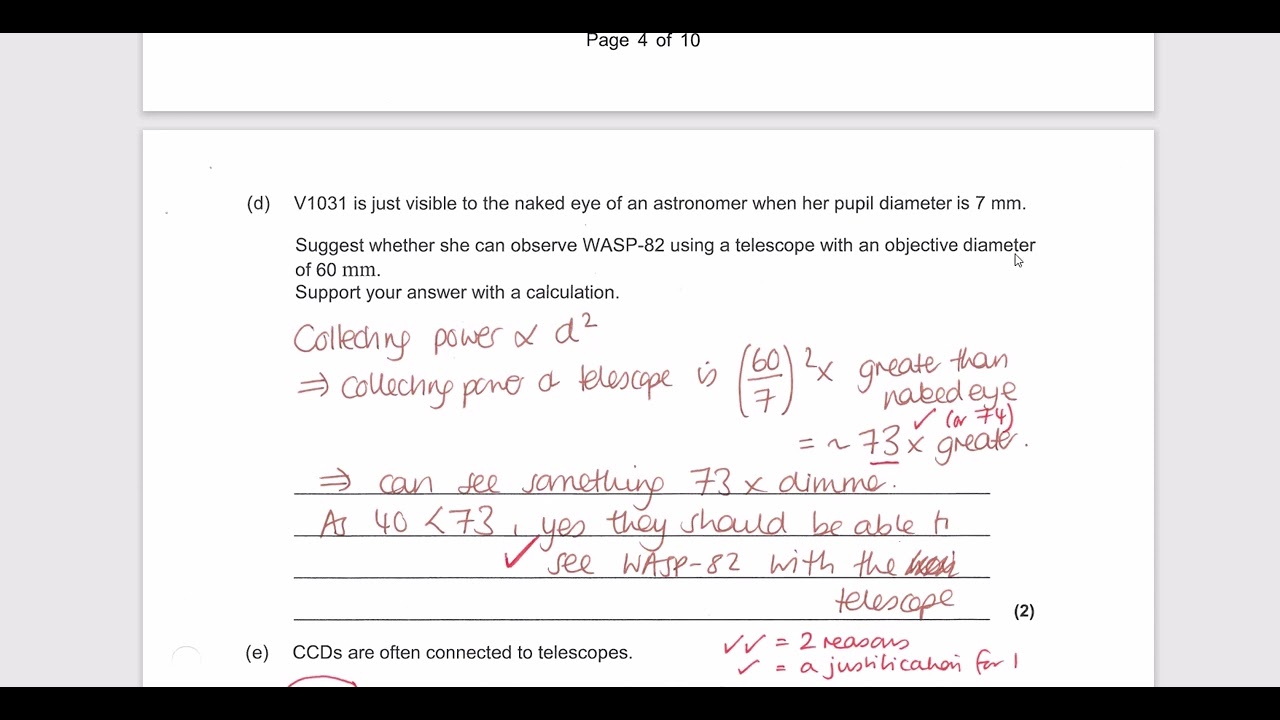 Page 4 of 10
(d) V1031 is just visible to the naked eye of an astronomer when her pupil diameter is 7 mm.
Suggest whether she can observe WASP-82 using a telescope with an objective diameter
of 60 mm.
Support your answer with a calculation.
Collecting power ∝ d²
⇒ collecting power of telescope is (60/7)² x greater than
naked eye
✓ (or 74)
= ~ 73 x greater.
⇒ can see something 73 x dimmer.
As 40 < 73, yes they should be able to
✓ see WASP-82 with the
telescope
(2)
✓✓ = 2 reasons
(e) CCDs are often connected to telescopes.
✓ = a justification for 1